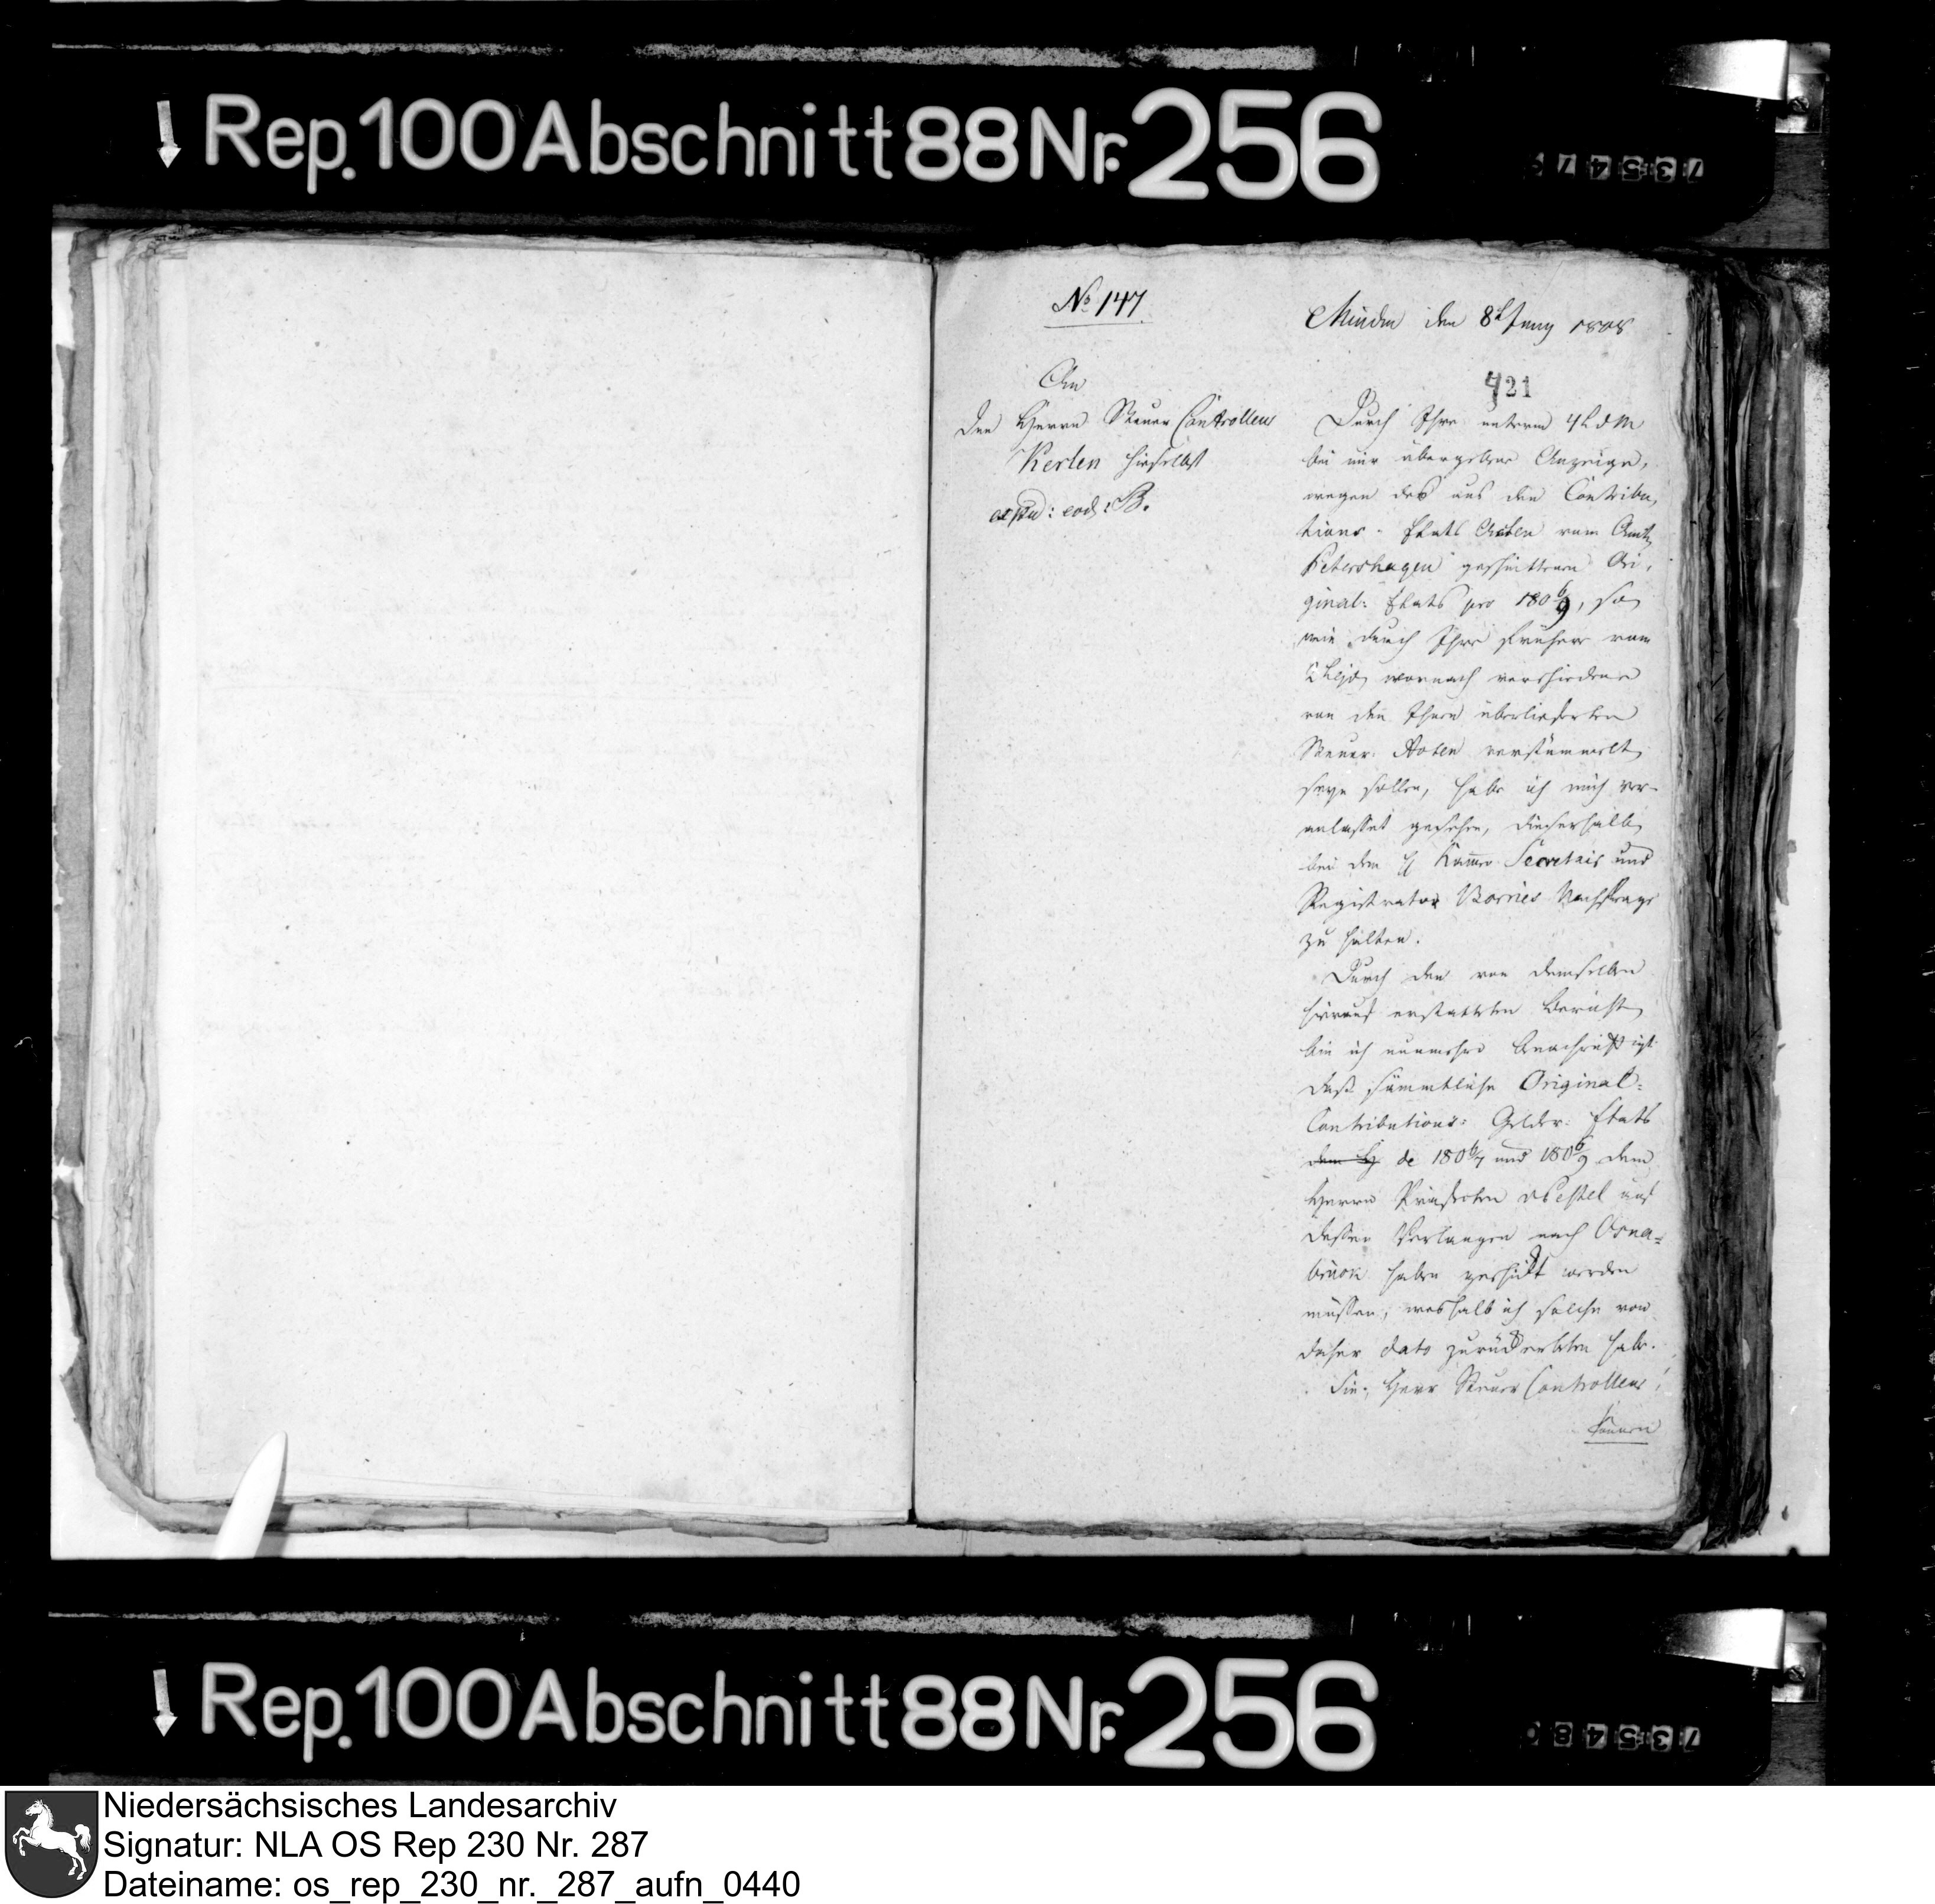 Rep. 100 Abschnitt 88 Nr. 256
No 147
Minden den 8t Juny 1808
421
An
den Herrn Steuer Controlleur
Kerlen hieselbst
exped: eod: B.
Durch Ihre unterm 4t d M
bei mir übergebene Anzeige,
wegen des aus den Contribu,
tions-Etats Acten vom Amte
Petershagen geschnittenen Ori,
ginal-Etats pro 180 6/9, so
wie durch Ihre frühere vom
wornach verschiedene
von den Ihnen überlieferten
Steuer-Acten verstümmelt
seyn sollen, habe ich mich ver-
anlasset gesehen, dieserhalb
bei dem H Kammer Secretair und
Registrator Borries Nachfrage
zu halten.
Durch den von demselben
hierauf erstatteten Bericht
bin ich nunmehro benachrichtigt
daß sämmtliche Original-
Contributions-Gelder-Etats
dem H de 180 6/7 und 180 6/9 dem
Herrn Präfecten v Pestel auf
dessen Verlangen nach Osna-
brück haben geschickt werden
müssen, weshalb ich solche von
daher dato zurückerbeten habe.
Sie, Herr Steuer Controlleur!
können
Rep. 100 Abschnitt 88 Nr. 256
Niedersächsisches Landesarchiv
Signatur: NLA OS Rep 230 Nr. 287
Dateiname: os_rep_230_nr._287_aufn_0440